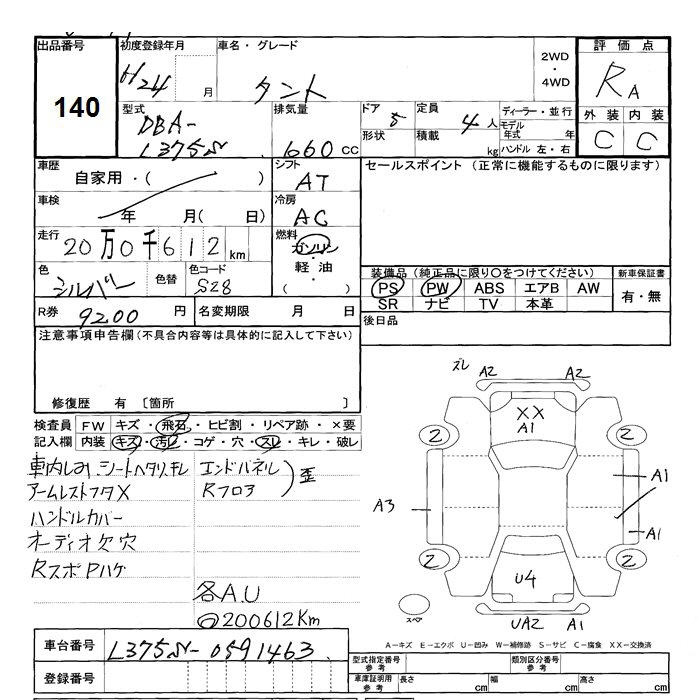 出品番号 初度登録年月 車名・グレード 2WD・4WD 評価点
140 H24 月 タント RA
型式 排気量 ドア 5 定員 4人 ディーラー・並行 外装 内装
DBA- 形状 積載 kg モデル年式 年 C C
L375S 660cc ハンドル 左・右
車歴 シフト セールスポイント (正常に機能するものに限ります)
自家用・( ) AT
車検 年 月( 日) 冷房 AC
走行 20万0千612km 燃料 ガソリン・軽油・( )
色 シルバー 色替 色コード S28
装備品 (純正品に限り○をつけてください) 新車保証書
PS PW ABS エアB AW 有・無
SR ナビ TV 本革
R券 9200円 名変期限 月 日 後日品
注意事項申告欄(不具合内容等は具体的に記入して下さい)
修復歴 有 〔箇所 〕
検査員 FW キズ・飛石・ヒビ割・リペア跡・×要
記入欄 内装 キズ・汚レ・コゲ・穴・スレ・キレ・破レ
車内しみ シートヘタリ.キレ エンドパネル
アームレストフタX Rフロア 歪
ハンドルカバー
オーディオ欠穴
RスポPハゲ
各A.U
200612Km
ズレ A2 A2
XX
A1
2 2
A3 A1
A1
2 2
U4
スペア UA2 A1
A-キズ E-エクボ U-凹み W-補修跡 S-サビ C-腐食 XX-交換済
車台番号 L375S-0591463
登録番号
型式指定番号 参考 類別区分番号 参考
車庫証明用 参考 長さ cm 幅 cm 高さ cm